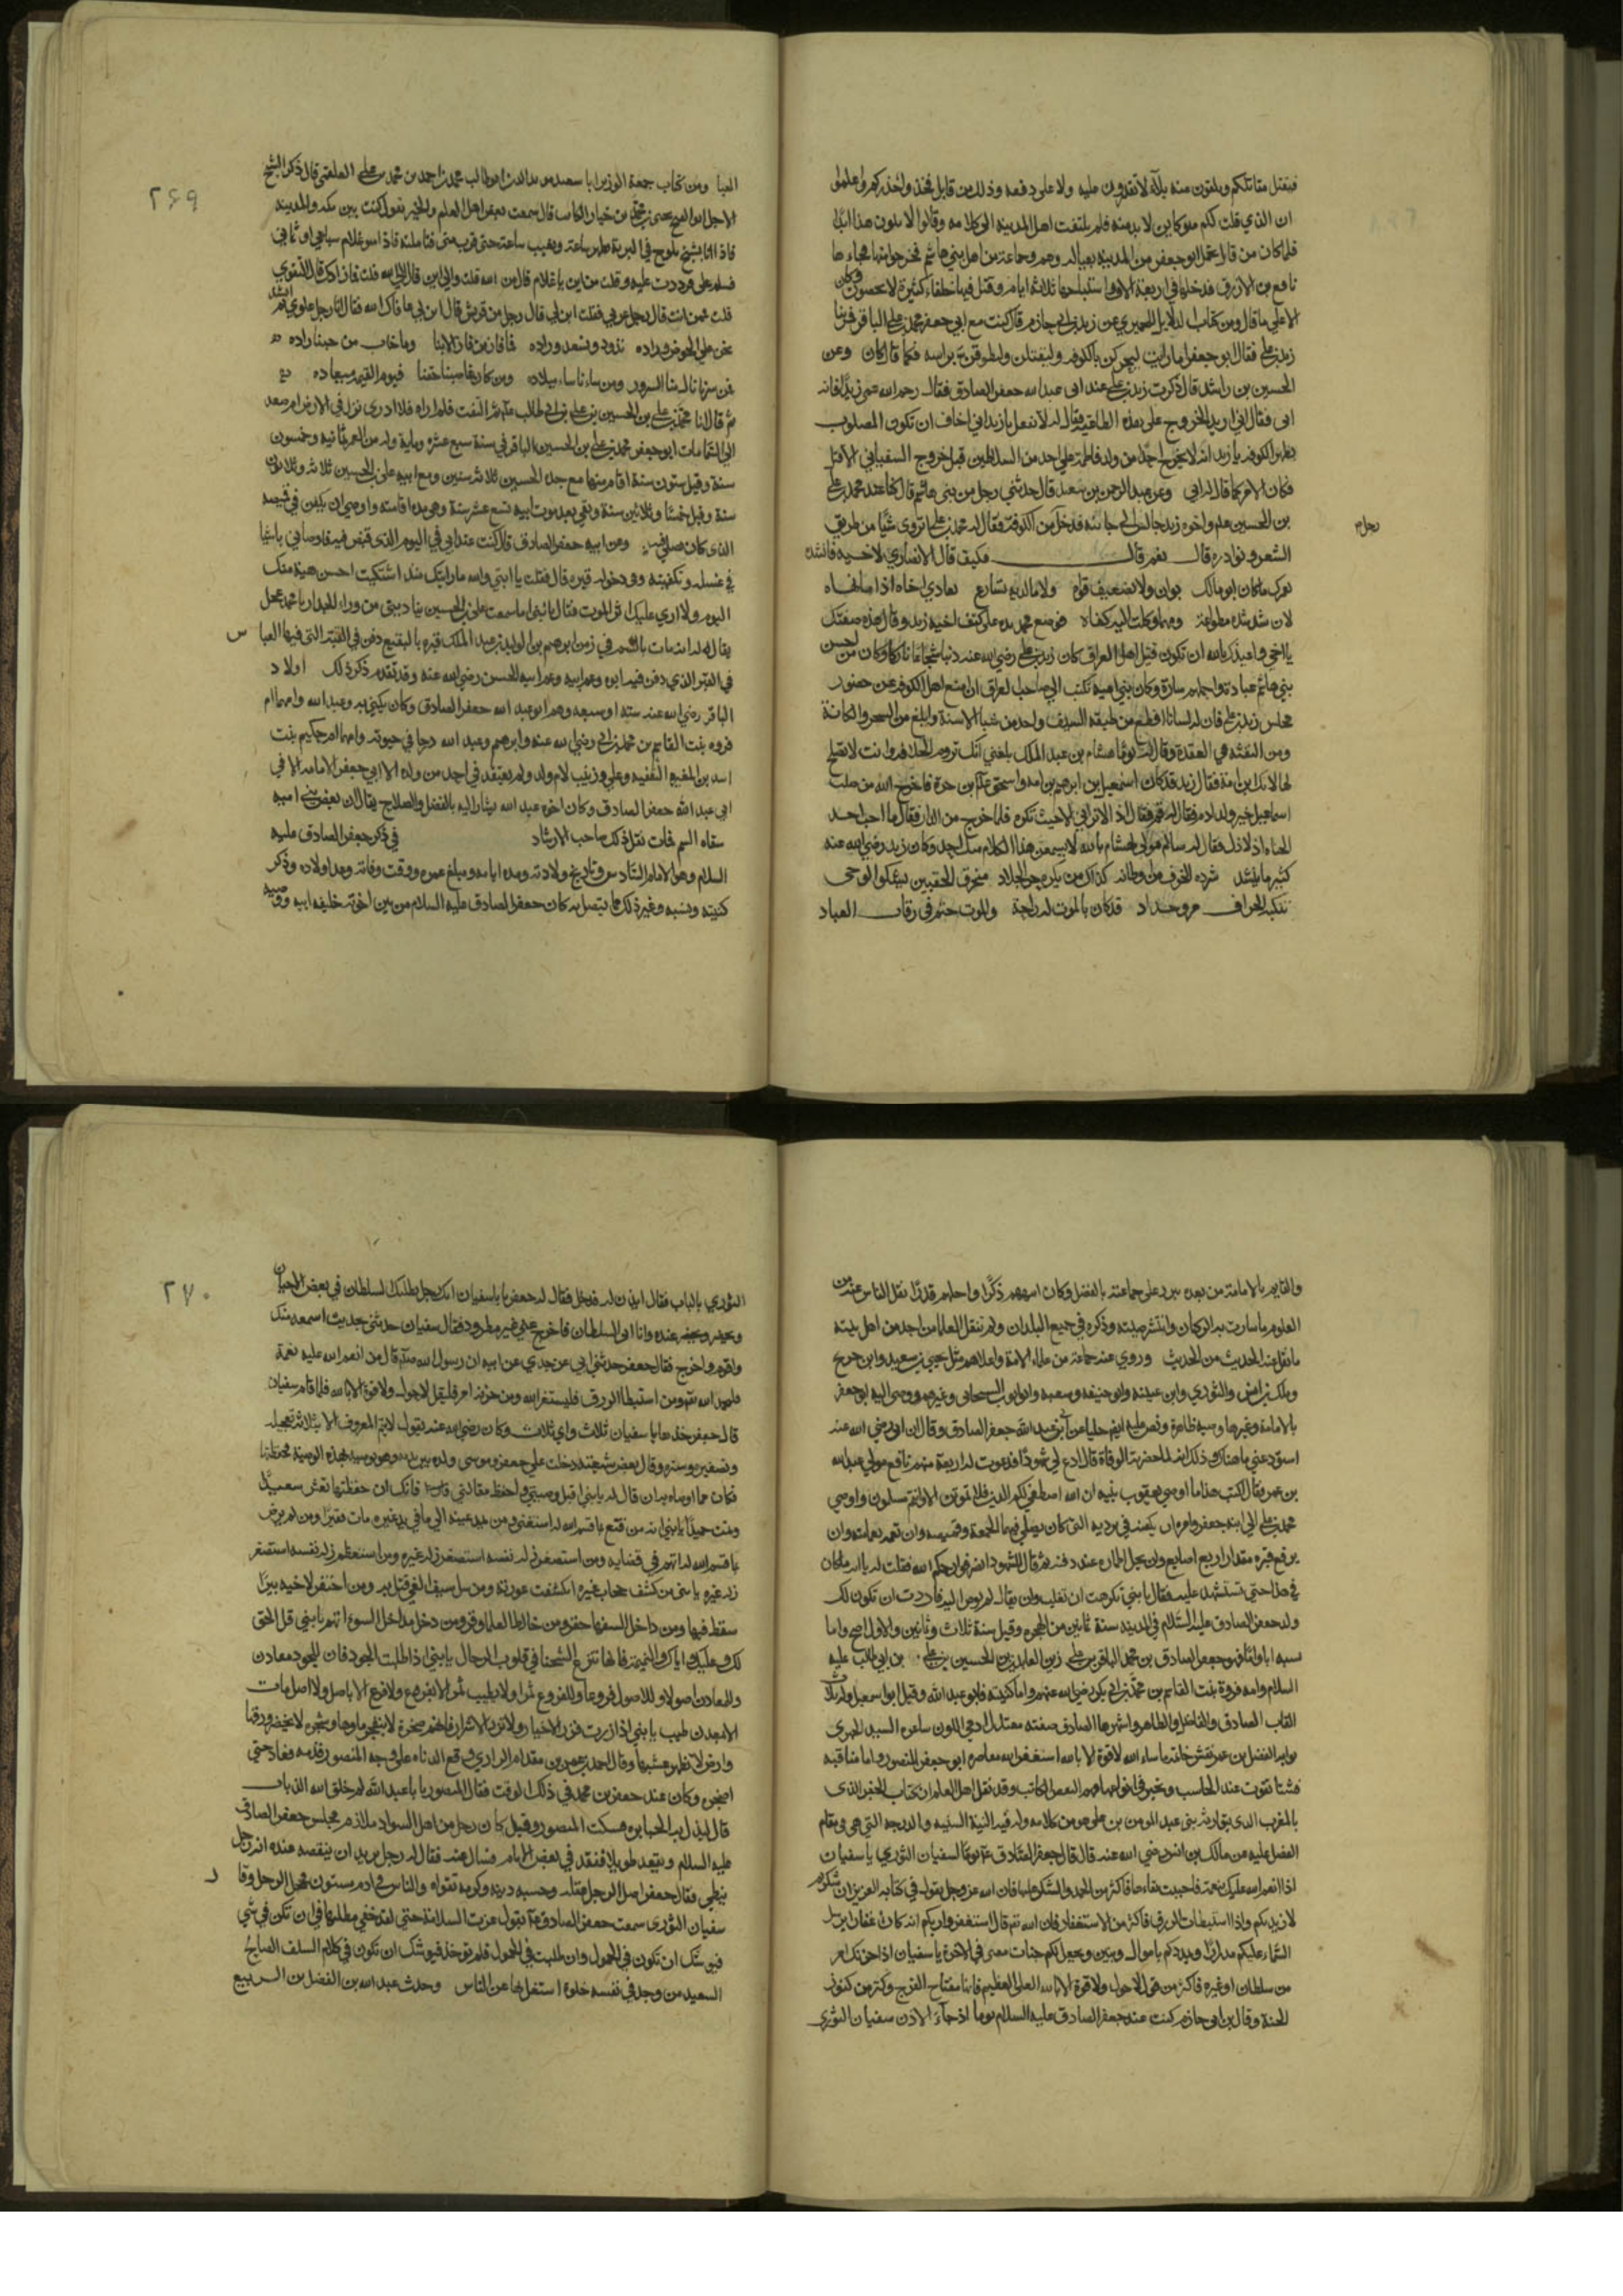 فيقتل مقاتلكم ويلقون منه بلاء لا تقدرون عليه ولا على دفعه وذلك من قابل فخذوا حذركم واعلموا
ان الذي قلت لكم هو كاين لا بد منه فلم يلتفت اهل المدينة الى كلامه وقالوا لا يكون هذا ابدا
فلما كان من قابل تحمل ابو جعفر من المدينة بعياله وهو وجماعة من اهل بني هاشم فخرجوا منها فجاء ها
نافع بن الازرق فدخلها في اربعة الاف واستباحها ثلاثة ايام وقتل فيها خلقا كثيرة لا يحصون وكان
الا على ما قال ومن كتاب الدلايل للحميري عن زيد بن ابي حازم قال كنت مع ابي جعفر محمد بن علي الباقر فمر بنا
زيد بن علي فقال ابو جعفر اما رايت ليخرجن بالكوفة وليقتلن وليطوفن براسه فكما قال كان وعن
الحسين بن راشد قال ذكرت زيد بن علي عند ابي عبد الله جعفر الصادق فقال رحم الله عمي زيدا فانه
اتى فقال اني اريد الخروج على هذه الطاغية فقال له لا تفعل يا زيد اني اخاف ان تكون المصلوب
بظهر الكوفة يا زيد انه لا يخرج احد من ولد فاطمة على احد من السلاطين قبل خروج السفياني الا قتل
فكان الامر كما قال له ابي وعن عبد الرحمن بن سعيد قال حدثني رجل من بني هاشم قال كنا عند محمد بن علي
بن الحسين عم واخوه زيد جالس الى جانبه فدخل من الكوفة فقال له محمد بن علي اتروي شيا من طريق
رجل م
الشعر ونوادره قال نعم قال فكيف قال الانصاري لاخيه فانشده
لعمرك ما كان ابو مالك بوان ولا بضعيف قواه ولا بالد به تنازع يعادي اخاه اذا ما نهاه
يا اخي واعيذك بالله ان تكون قتيل اهل العراق كان زيد بن علي رضي الله عنه دينا شجاعا ناسكا وكان من احسن
بني هاشم عبادة
مجلس زيد بن علي فان له لسانا اقطع من ظبة السيف واحد من شبا الاسنة وابلغ من السحر والكهانة
ومن النفث في العقد وقال له يوما هشام بن عبد الملك بلغني انك تروم الخلافة وانت لا تصلح
لها لانك ابن امة فقال زيد قد كان اسمعيل بن ابرهيم بن امة واسحق عم ابن حرة فاخرج الله من صلب
اسماعيل خير ولد ادم فقال له قم فقال اذا لا تراني الا حيث تكره فلما خرج من الدار قال ما احب احد
الحياة الا ذل فقال له سالم مولى هشام بالله لا يسمعن هذا الكلام منك احد وكان زيد رضي الله عنه
كثيرا ما ينشد شرده الخوف من اوطانه كذاك من يكره حر الجلاد منخرق الخفين يشكو الوجى
تنكبه اطراف مرو حداد قد كان بالموت له راحة والموت حتم في رقاب العباد
٢٦٩
العبا ومن كتاب جمعه الوزير ابا سعيد ابو طالب محمد بن احمد بن محمد بن علي العلقمي قال ذكر الشيخ
قال سمعت بعض اهل العلم والخير يقول كنت بين مكة والمدينة
فاذا انا بشبح يلوح في البرية يظهر ساعة ويغيب ساعة حتى قرب مني فتاملته فاذا هو غلام سباعي او ثماني
فسلم علي فرددت عليه وقلت من اين يا غلام قال من الله قلت والى اين قال الى الله قلت فما زادك قال التقوى
قلت فمن انت قال رجل عربي فقلت ابن لي قال رجل من قريش قلت ابن لي عافاك الله فقال انا رجل علوي ثم انشد
نحن على الحوض وراده نذود ويسعد وراده فما فاز من فاز الا بنا وما خاب من حبنا زاده
فمن سرنا نال منا السرور ومن ساءنا ساء ميلاده ومن كان غاصبنا حقنا فيوم القيمة ميعاده
ثم قال انا محمد بن علي بن الحسين بن علي بن ابي طالب ثم التفت فلم اره فلا ادري نزل في الارض ام صعد
الى السما مات ابو جعفر محمد بن علي بن الحسين الباقر في سنة سبع عشرة ومايه وله من العمر ثمانيه وخمسون
سنة وقيل ستون سنة اقام منها مع جده الحسين ثلاث سنين ومع ابيه علي بن الحسين ثلاث وثلاثون
سنة وقيل خمسا وثلاثين سنة وبقي بعد موت ابيه تسع عشر سنة وهي مدة اقامته واوصى ان يكفن في قميصه
الذي كان يصلي فيه وعن ابنه جعفر الصادق قال كنت عند ابي في اليوم الذي قبض فيه فاوصاني باشيا
في غسله وتكفينه وفي دخوله قبره قال فقلت يا ابتي والله ما رايتك منذ اشتكيت احسن هيئة منك
اليوم ولا ارى عليك اثر الموت فقال يا بني اما سمعت علي بن الحسين يناديني من وراء الجدار يا محمد عجل
يقال انه مات بالسم في زمن ابرهيم بن الوليد بن عبد الملك قبره بالبقيع دفن في القبة التي فيها العباس
في القبر الذي دفن فيه ابوه وعم ابيه الحسن رضي الله عنه وقد تقدم ذكر ذلك اولاد
الباقر رضي الله عنه ستة او سبعة وهم ابو عبد الله جعفر الصادق وكان يكنى به وعبد الله وامهما ام
فروه بنت القاسم بن محمد بن ابي رضي الله عنه وابرهيم وعبد الله درجا في حيوته وامهما ام حكيم بنت
اسد بن المغيرة الثقفيه وعلي وزينب لام ولد ولم يعتقد في احد من ولد ابي جعفر الامامة الا في
ابي عبد الله جعفر الصادق وكان اخوه عبد الله يشار اليه بالفضل والصلاح يقال ان بعض بني اميه
سقاه السم فمات نقل ذلك صاحب الارشاد في ذكر جعفر الصادق عليه
السلام وهو الامام السادس وتاريخ ولادته ومدة ايامه ومبلغ عمره ووقت وفاته وعدد اولاده وذكر
كنيته ونسبه وغير ذلك مما يتصل به كان جعفر الصادق عليه السلام من بين اخوته خليفة ابيه ووصيه
والقايم بالامامة من بعده برز على جماعته بالفضل وكان انبههم ذكرا واجلهم قدرا نقل الناس عنه من
العلوم ما سارت به الركبان وانتشر صيته وذكره في جميع البلدان ولم تنقل العلما عن احد من اهل بيته
ما نقل عنه الحديث من الحديث وروى عنه جماعة من علماء الامة واعلامهم مثل يحيى بن سعيد وابن جريج
وملك بن انس والثوري وابن عيينه وابو حنيفه وشعبه وابو ايوب السجستاني وغيرهم ووصى اليه ابو جعفر
بالامامة وغيرها وصية ظاهرة ونص عليه نصا جليا عن ابي عبد الله جعفر الصادق وقال ان ابي رضي الله عنه
استودعني ما هناك وذلك انه لما حضرته الوفاة قال ادع لي شهودا فدعوت له اربعة منهم نافع مولى عبد الله
بن عمر فقال اكتب هذا ما اوصى يعقوب بنيه ان الله اصطفى لكم الدين فلا تموتن الا وانتم مسلمون واوصى
محمد بن علي الى ابنه جعفر وامره ان يكفنه في برديه التي كان يصلي فيهما الجمعة وقميصه وان تعمه بعمامته وان
يرفع قبره مقدار اربع اصابع وان يحل اطماره عند دفنه ثم قال للشهود انصرفوا رحمكم الله فقلت له يا ابه ما كان
في هذا حتى تستشهد عليه فقال يا بني كرهت ان تغلب وان يقال لم يوص اليه فاردت ان تكون لك
ولد جعفر الصادق عليه السلام في المدينه سنة ثمانين من الهجره وقيل سنة ثلاث وثمانين والاول اصح واما
نسبه ابا واما فهو جعفر الصادق بن محمد الباقر بن علي زين العابدين بن الحسين بن علي بن ابي طالب عليه
السلام وامه فروة بنت القاسم بن محمد بن ابي بكر رضي الله عنهم واما كنيته فابو عبد الله وقيل ابو اسمعيل وله ثلاث
القاب الصادق والفاضل والطاهر واشهرها الصادق صفته معتدل ادمي اللون شاعره السيد الحميري
بوابه المفضل بن عمر نقش خاتمه ما شاء الله لا قوة الا بالله استغفر الله معاصره ابو جعفر المنصور واما مناقبه
فتكاد تفوت عند الحاسب ويتحير في انواعها فهم اليقظ الكاتب وقد نقل اهل العلم ان كتاب الجفر الذي
بالمغرب الذي يتوارثه بنو عبد المومن بن علي هو من كلامه وله فيه المنقبة السنيه والدرجه التي هي في مقام
الفضل عليه عن مالك بن انس رضي الله عنه قال قال جعفر الصادق عم يوما لسفيان الثوري يا سفيان
اذا انعم الله عليك بنعمة فاحببت بقاءها فاكثر من الحمد والشكر عليها فان الله عز وجل يقول في كتابه العزيز لئن شكرتم
لازيدنكم واذا استبطات الرزق فاكثر من الاستغفار فان الله تع قال استغفروا ربكم انه كان غفارا يرسل
السماء عليكم مدرارا ويمددكم باموال وبنين ويجعل لكم جنات معنى في الاخرة يا سفيان اذا حزنك امر
من سلطان او غيره فاكثر من قول لا حول ولا قوة الا بالله العلي العظيم فانها مفتاح الفرج وكنز من كنوز
الجنة وقال بن ابي حازم كنت عند جعفر الصادق عليه السلام يوما اذ جاء الاذن سفيان الثوري
٢٧٠
الثوري بالباب فقال ايذن له فدخل فقال له جعفر يا سفيان انك رجل يطلبك السلطان في بعض الاحيان
وتحضر عنده وانا اتقي السلطان فاخرج عني غير مطرود فقال سفيان حدثني حديث اسمعه منك
واقوم واخرج فقال جعفر حدثني ابي عن جدي عن ابيه ان رسول الله صلعم قال من انعم الله عليه نعمة
فليحمد الله تع ومن استبطا الرزق فليستغفر الله ومن حزنه امر فليقل لا حول ولا قوة الا بالله فلما قام سفيان
قال جعفر خذها يا سفيان ثلاث واي ثلاث وكان رضي الله عنه يقول لا يتم المعروف الا بثلاثة تعجيله
وتصغيره وستره وقال بعض شيعته دخلت على جعفر وموسى ولده بين يديه وهو يوصيه بهذه الوصية فحفظتها
فكان مما اوصاه به ان قال له يا بني اقبل وصيتي واحفظ مقالتي فانك ان حفظتها تعش سعيدا
وتمت حميدا يا بني انه من قنع بما قسم الله له استغنى ومن مد عينيه الى ما في يد غيره مات فقيرا ومن لم يرض
بما قسم الله له اتهم في قضايه ومن استصغر زلة نفسه استصغر زلة غيره ومن استعظم زلة نفسه استصغر
زلة غيره يا بني من كشف حجاب غيره انكشفت عورته ومن سل سيف البغي قتل به ومن احتفر لاخيه بيرا
سقط فيها ومن داخل السفها حقر ومن خالط العلما وقر ومن دخل مداخل السوء اتهم يا بني قل الحق
لك وعليك واياك والنميمة فانها تزرع الشحنا في قلوب الرجال يا بني اذا طلبت الجود فان للجود معادن
وللمعادن اصولا وللاصول فروعا وللفروع ثمرا ولا يطيب ثمر الا بفرع ولا فرع الا باصل ولا اصل ثابت
الا بمعدن طيب يا بني اذا زرت فزر الاخيار ولا تزر الاشرار فانهم صخرة لا ينفجر ماوها وشجرة لا يخضر ورقها
وارض لا تظهر عشبها وقال احمد بن عمر بن مقدام الرازي وقع الذباب على وجه المنصور فذبه فعاد حتى
اضجره وكان عند جعفر بن محمد في ذلك الوقت فقال المنصور يا با عبد الله لم خلق الله الذباب
قال ليذل به الجبابره فسكت المنصور وقيل كان رجل من اهل السواد ملازم مجلس جعفر الصادق
عليه السلام ويقعد طويلا ففقده في بعض الايام فسال عنه فقال له رجل يريد ان ينقصه عنده انه رجل
نبطي فقال جعفر اصل الرجل عقله وحسبه دينه وكرمه تقواه والناس في ادم مستوون فخجل الرجل وقال
سفيان الثوري سمعت جعفر الصادق عم يقول عزت السلامة حتى لقد خفي مطلبها فان تكن في شي
فيوشك ان تكون في الخمول وان طلبت في الخمول فلم توجد فيوشك ان تكون في كلام السلف الصالح
السعيد من وجد في نفسه خلوة اشتغل بها عن الناس وحدث عبد الله بن الفضل بن الربيع